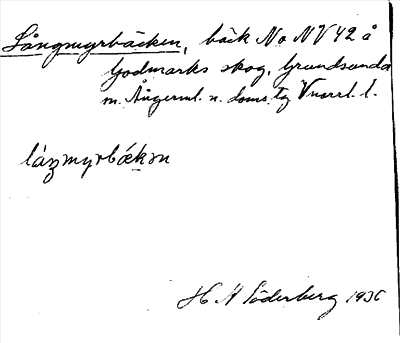 Långmyrbäcken, bäck No NV 42 å
Godmarks skog, Grundsunda
m. Ångerml. n. doms. tg Vnorrl. l.
láŋmyrbækən
H A Söderberg 1936